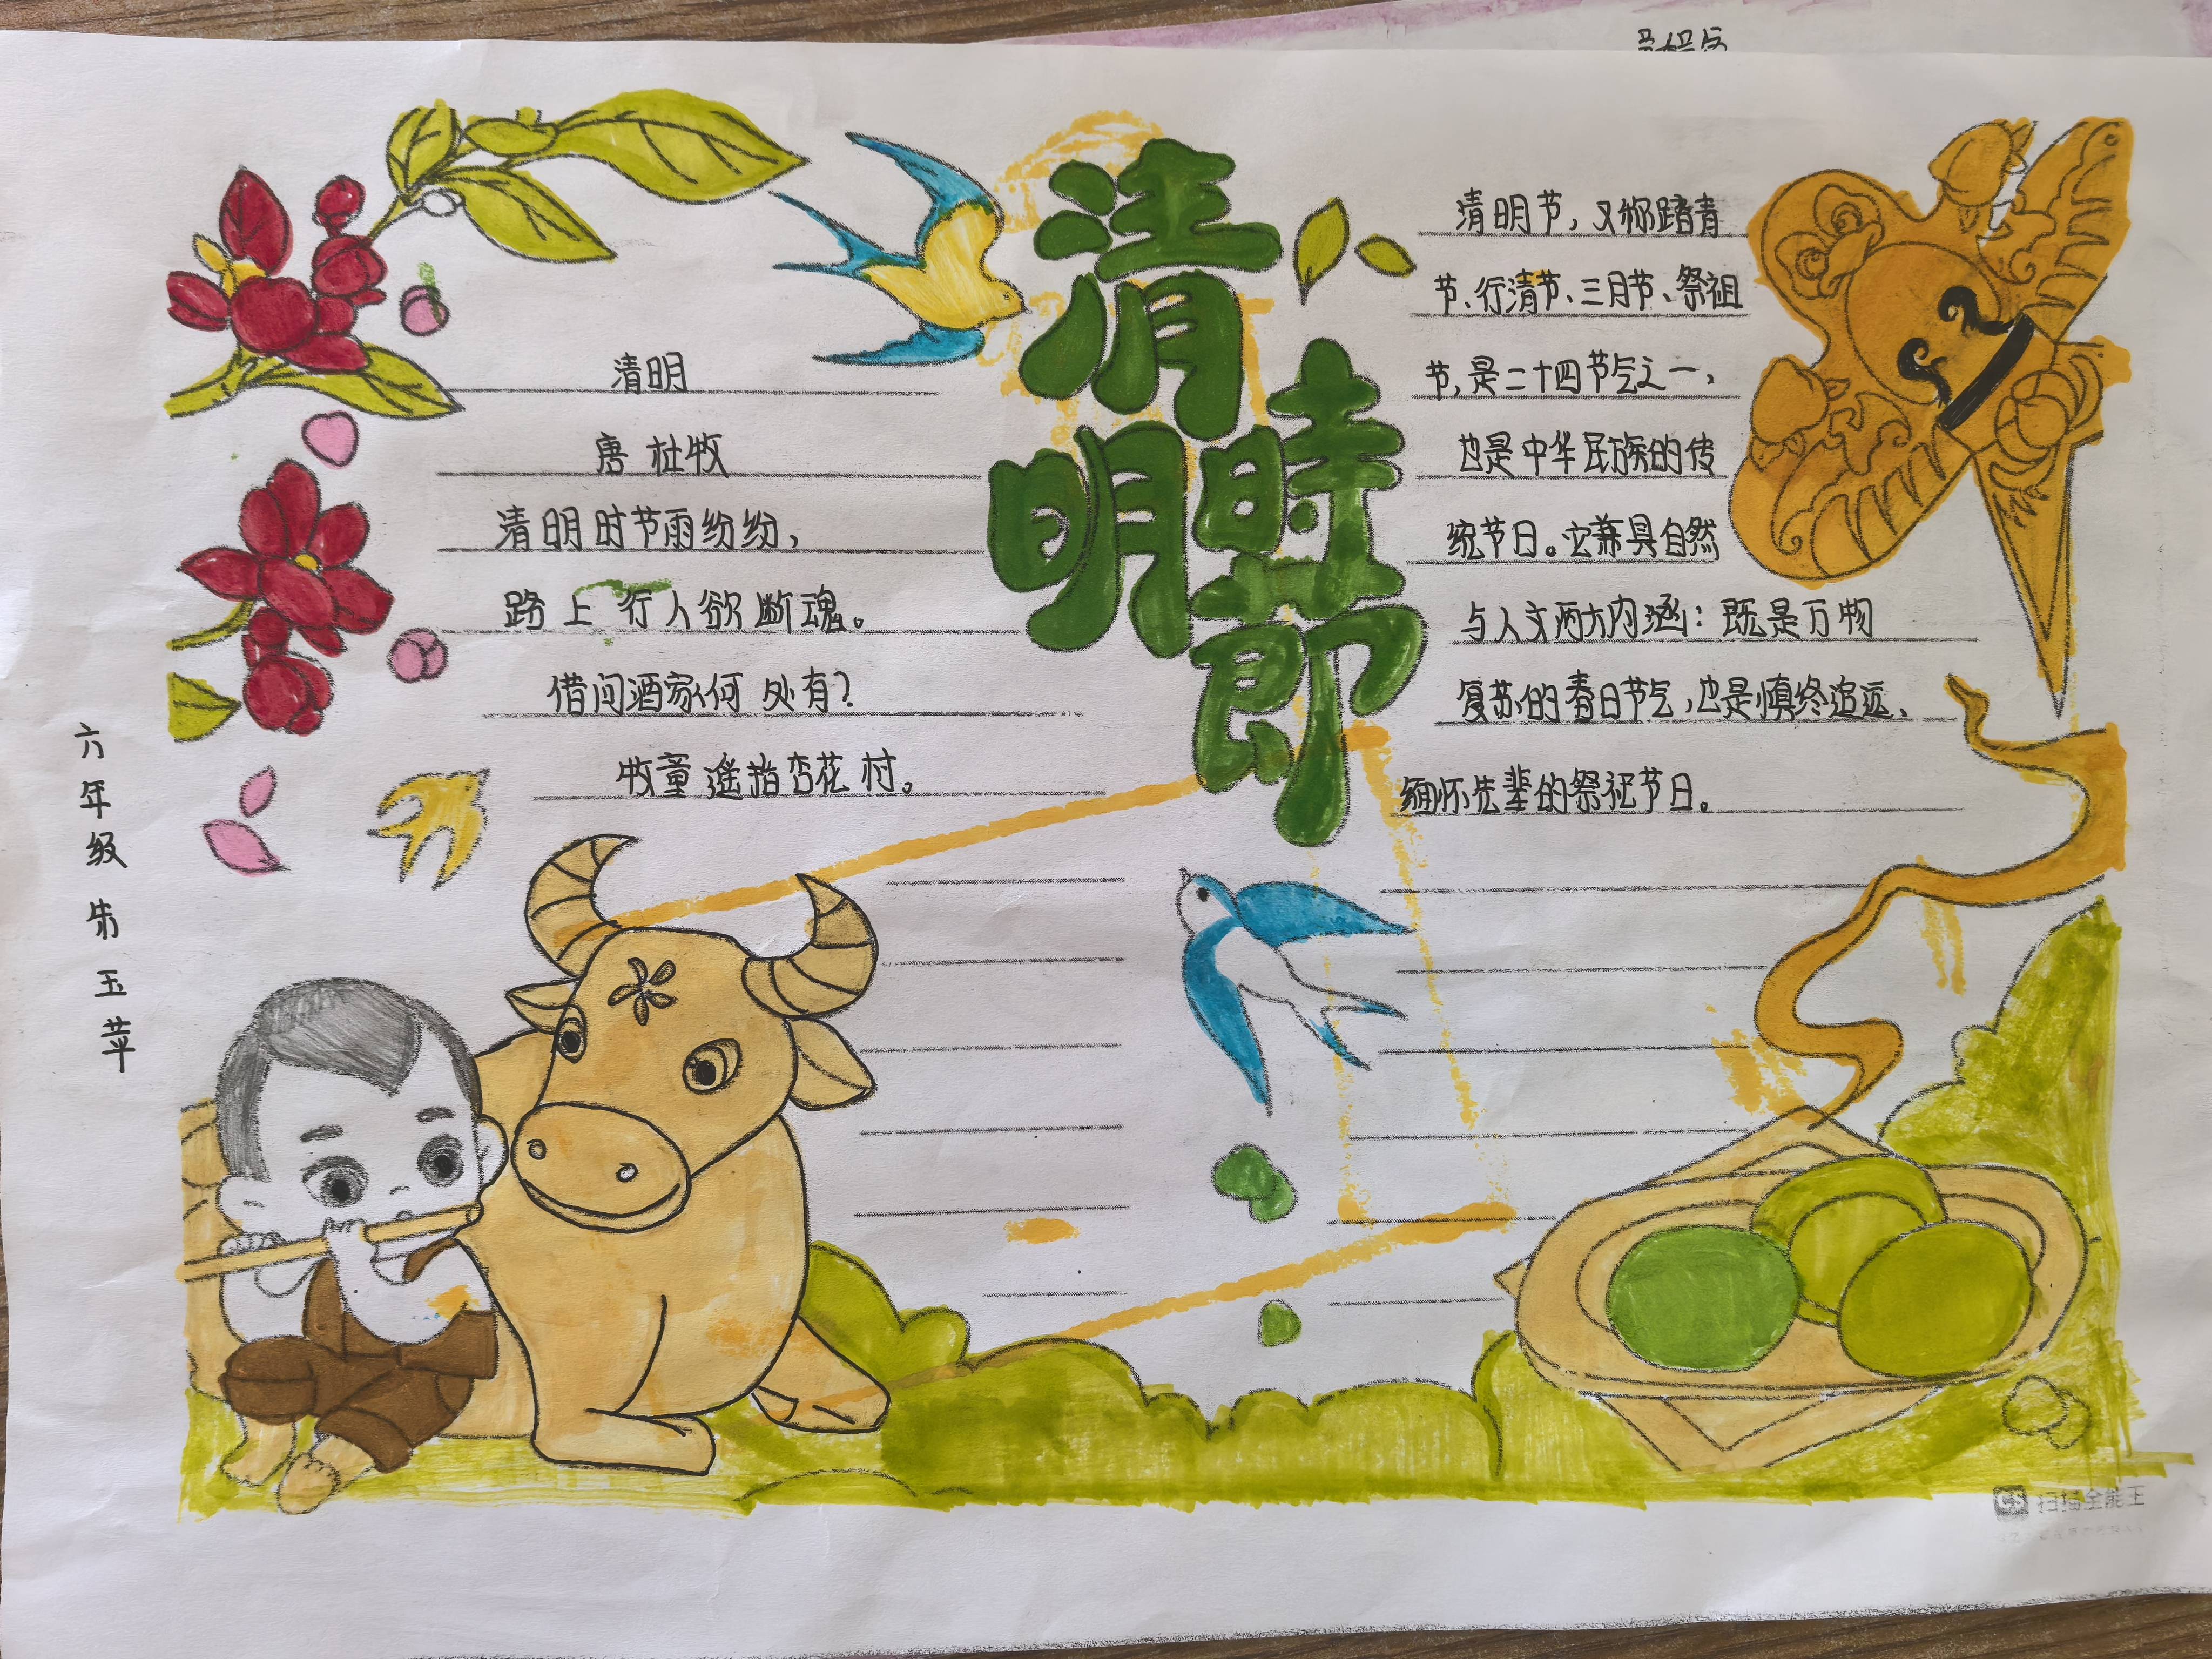 清明时節
清明
唐 杜牧
清明时节雨纷纷，
路上行人欲断魂。
借问酒家何处有？
牧童遥指杏花村。
清明节，又称踏青
节、行清节、三月节、祭祖
节，是二十四节气之一，
也是中华民族的传
统节日。它兼具自然
与人文两大内涵：既是万物
复苏的春日节气，也是慎终追远、
缅怀先辈的祭祀节日。
六年级 朱玉苹
CS 扫描全能王